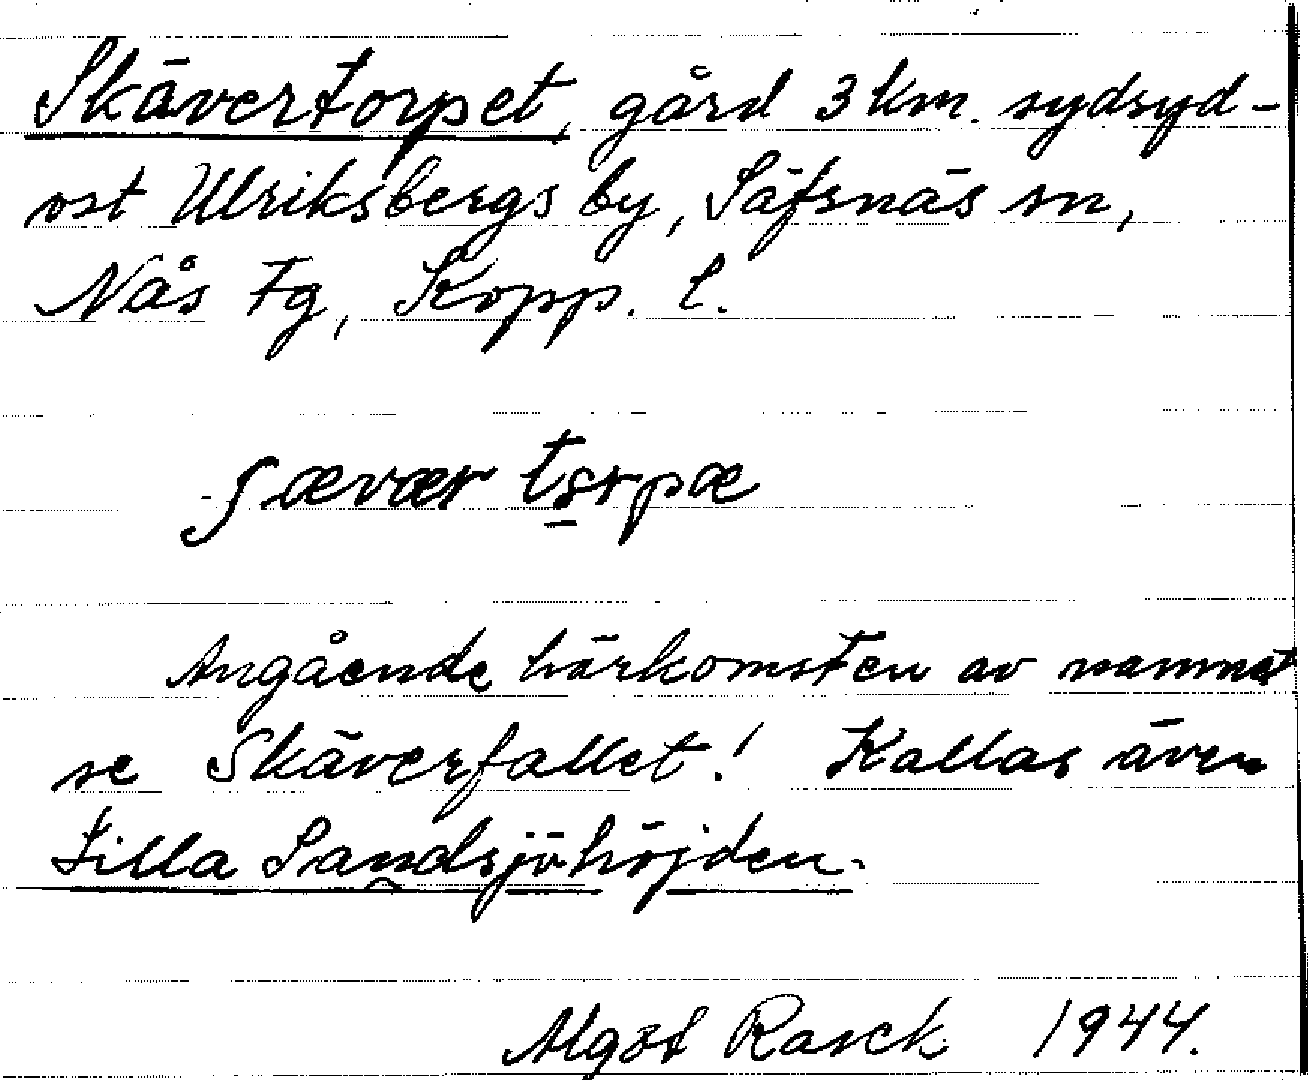 Skävertorpet, gård 3 km. sydsyd-
ost Ulriksbergs by, Säfsnäs sn,
Nås tg, Kopp. l.
ʃævær tɔrpæ
Angående härkomsten av namnet
se Skäverfallet! Kallas även
Lilla Sandsjöhöjden.
Algot Rasck 1944.